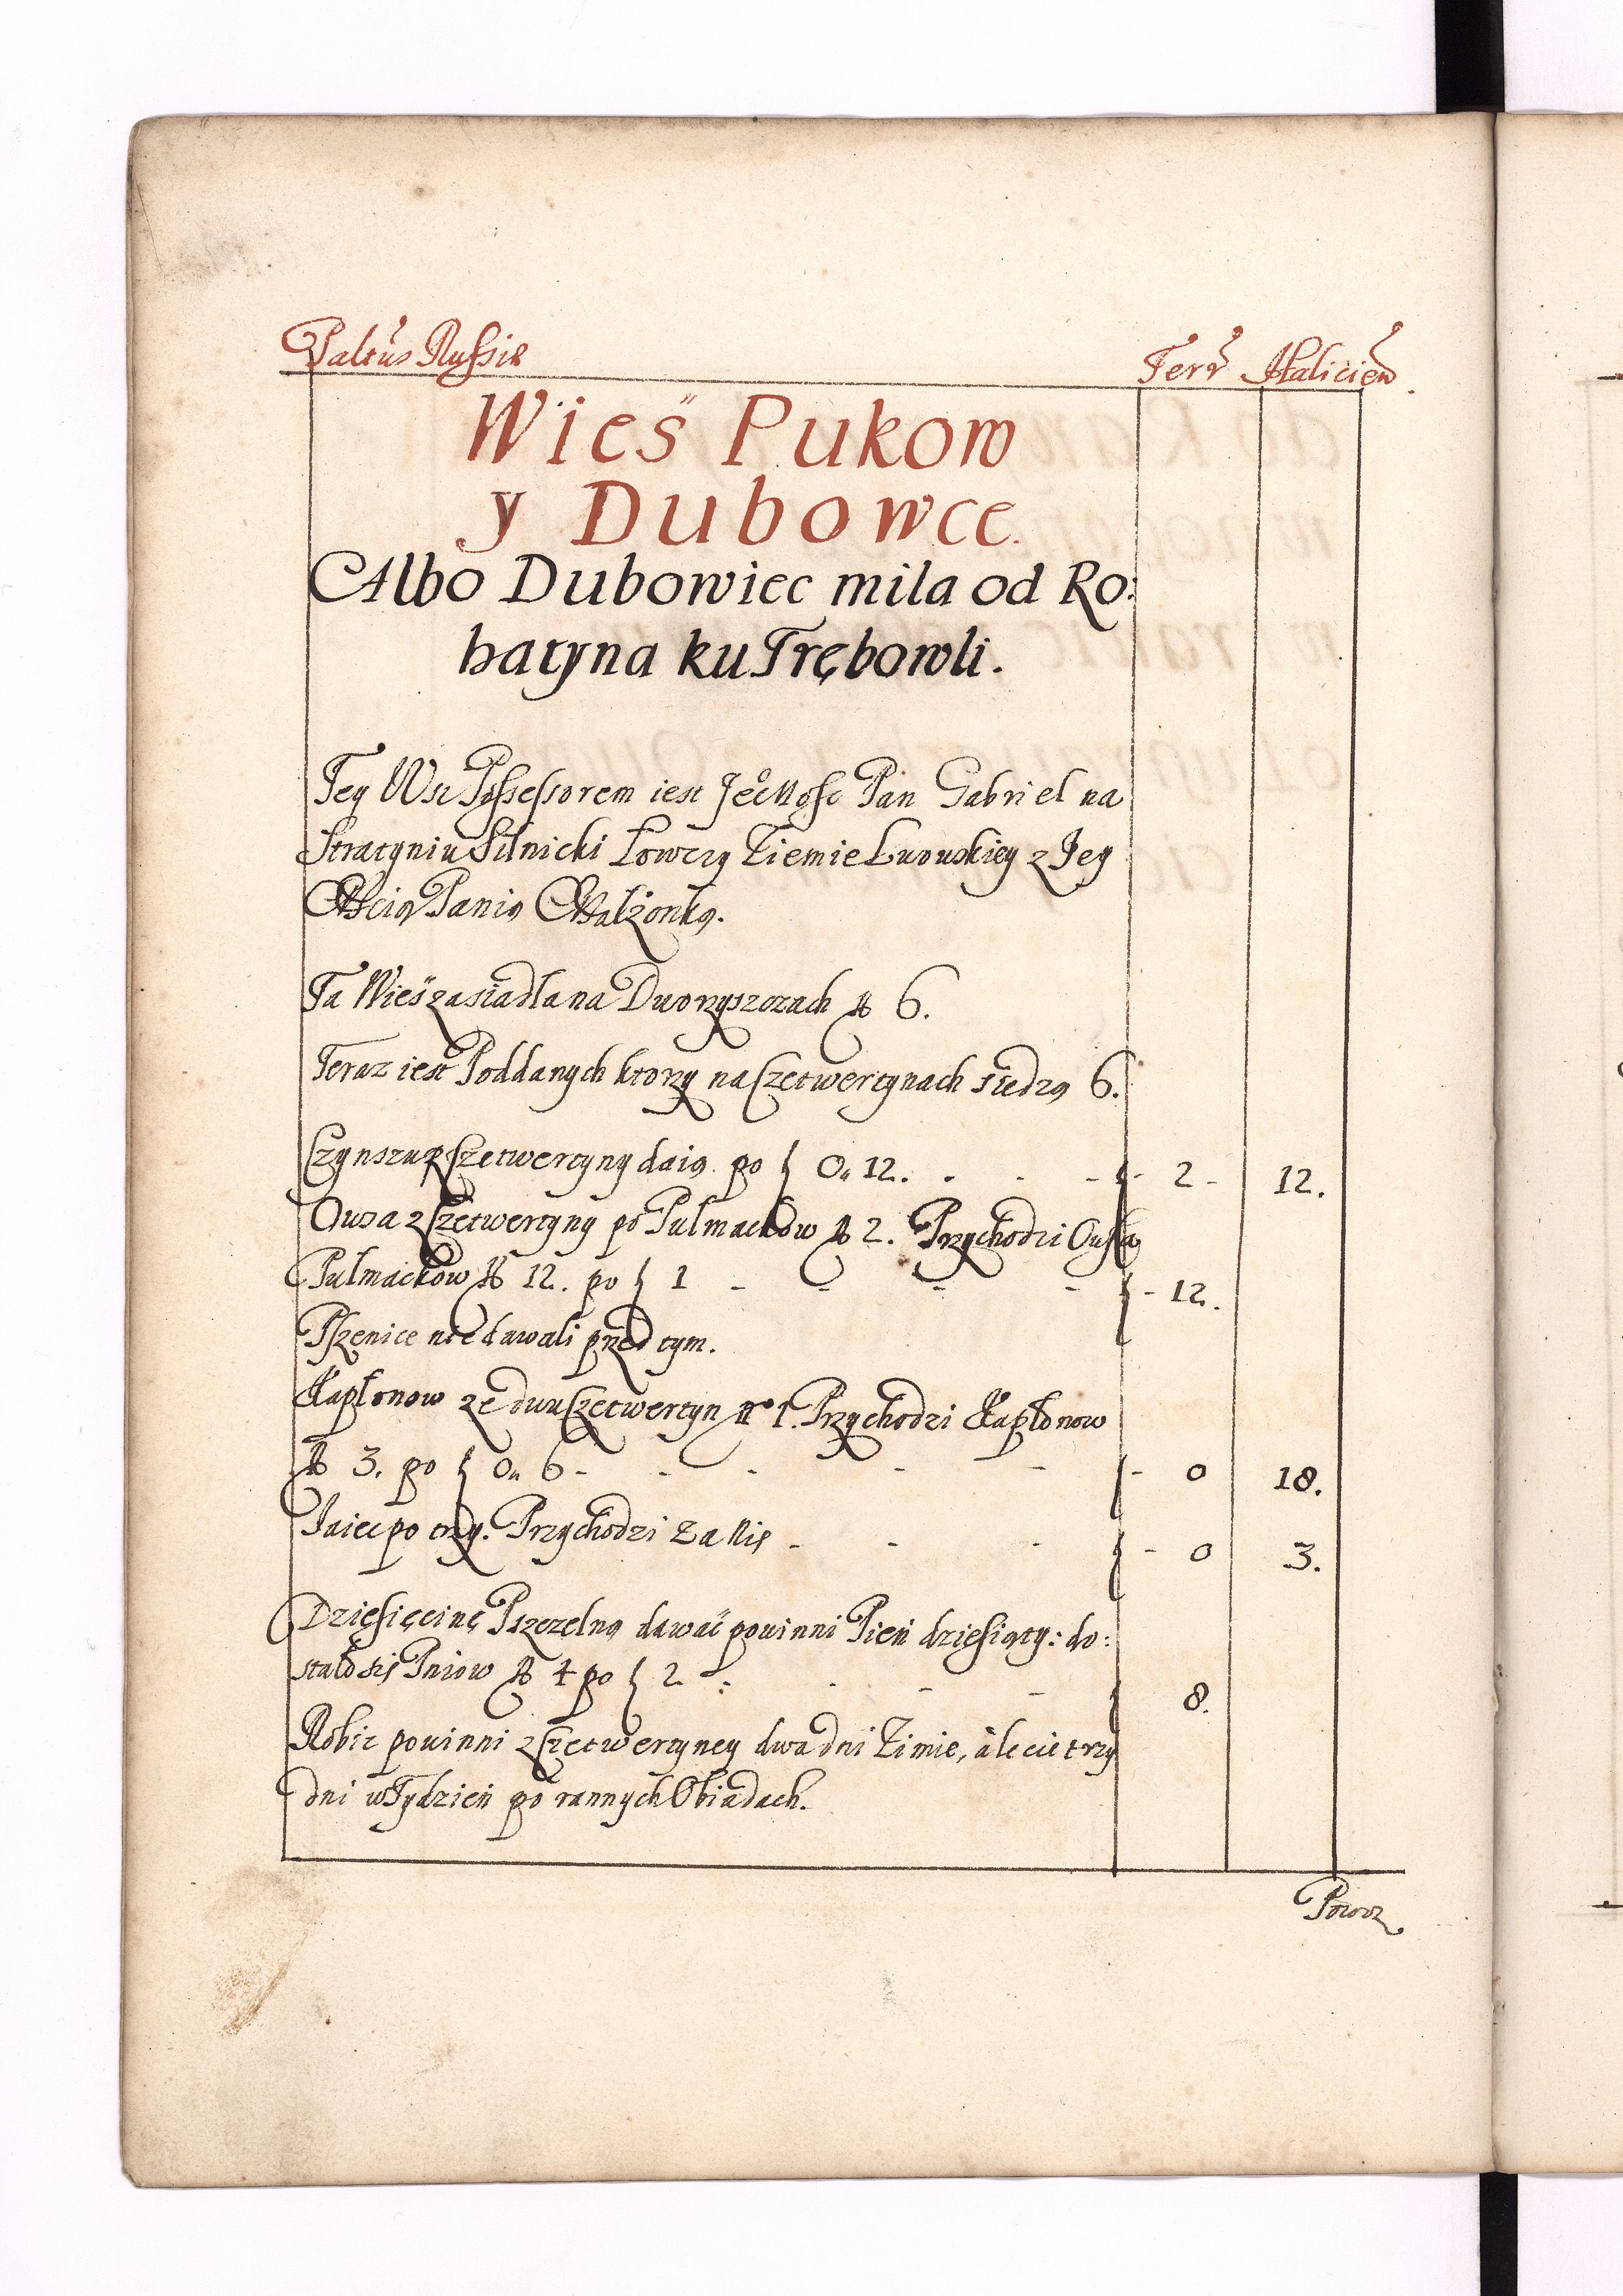 Paltus Russiæ Terræ Halicien.
Wieś Pukow
y Dubowce.
Albo Dubowiec mila od Ro:
hatyna ku Trębowli.
Tey Wsi Possessorem iest JeoMośc Pan Gabriel na
Stratyniu Silnicki Łowczy Ziemie Lwowskiey z Jey
Mscią Panią Małżonką.
Ta Wieś zasiadła na Dworzyszczach No 6.
Teraz iest Poddanych ktorzy na Czetwertynach siedzą 6.
Czynszu z Czetwertyny daią po f 0. 12. f - 2 - 12.
Owsa z Czetwertyny po Pulmackow No 2. Przychodzi Owsa
Pulmackow No 12. po f 1 - f - 12.
Pszenice nie dawali przed tym.
Kapłonow ze dwu Czetwertyn No 1. Przychodzi Kapłonow
No 3. po f 0. 6 - f - 0 18.
Jaiec po trzy. Przychodzi za nie - f - 0 3.
Dziesięcinę Pszczelną dawać powinni Pień dziesiąty: do:
stało się Pniow No 4 po f 2 f 8.
Robic powinni z Czetwertyney dwa dni Zimie, à lecie trzy
dni w Tydzień po rannych Obiadach.
Powoz